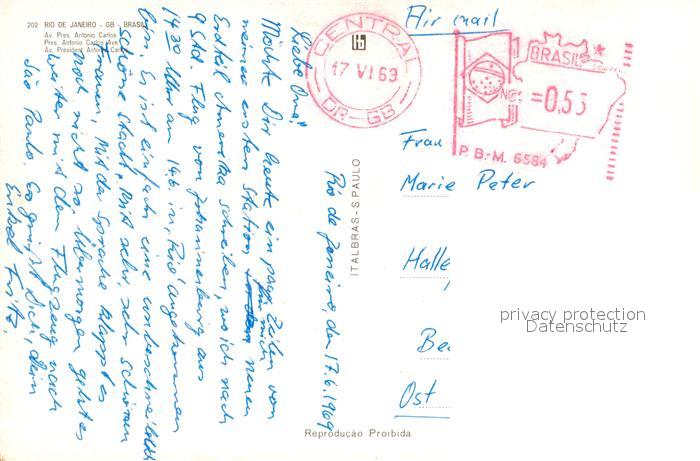 202 RIO DE JANEIRO - GB - BRASIL
Av. Pres. Antonio Carlos
Pres. Antonio Carlos Ave.
Av. Président Antonio Carlos
Air mail
CENTRAL
17 VI 69
DR-GB
BRASIL
NCr =0,55
P.B.-M. 6584
Rio de Janeiro, den 17.6.1969
Liebe Oma!
Möchte Dir heute ein paar Zeilen von
meiner ersten Station für mich neuen
Erdteil Amerika schreiben, wo ich nach
9 Std. Flug von Johannesburg aus
14.30 Uhr am 14.6. in Rio angekommen
bin. Es ist einfach eine unbeschreiblich
schöne Stadt, mit sehr, sehr schönen
Frauen. Mit der Sprache klappt es
noch nicht so. Übermorgen geht es
weiter mit dem Flugzeug nach
São Paulo. Es grüßt Dich, dein
Enkel Fritz.
ITALBRAS - S PAULO
Reprodução Proibida
Frau
Marie Peter
Halle
Ost
privacy protection
Datenschutz